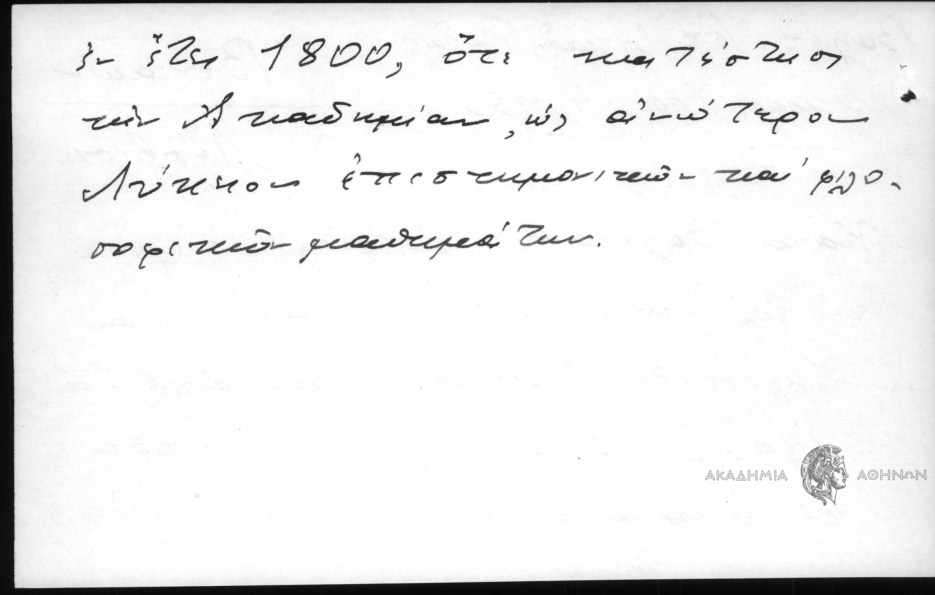 ἐν ἔτει 1800, ὅτε κατέστησε
τὴν Ἀκαδημίαν, ὡς ἀνώτερον
Λύκειον ἐπιστημονικῶν καὶ φιλο-
σοφικῶν μαθημάτων.
ΑΚΑΔΗΜΙΑ ΑΘΗΝΩΝ